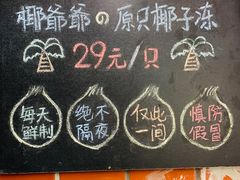 椰爷爷の原只椰子冻
29元/只
每天
鲜制
纯不
隔夜
仅此
一间
慎防
假冒